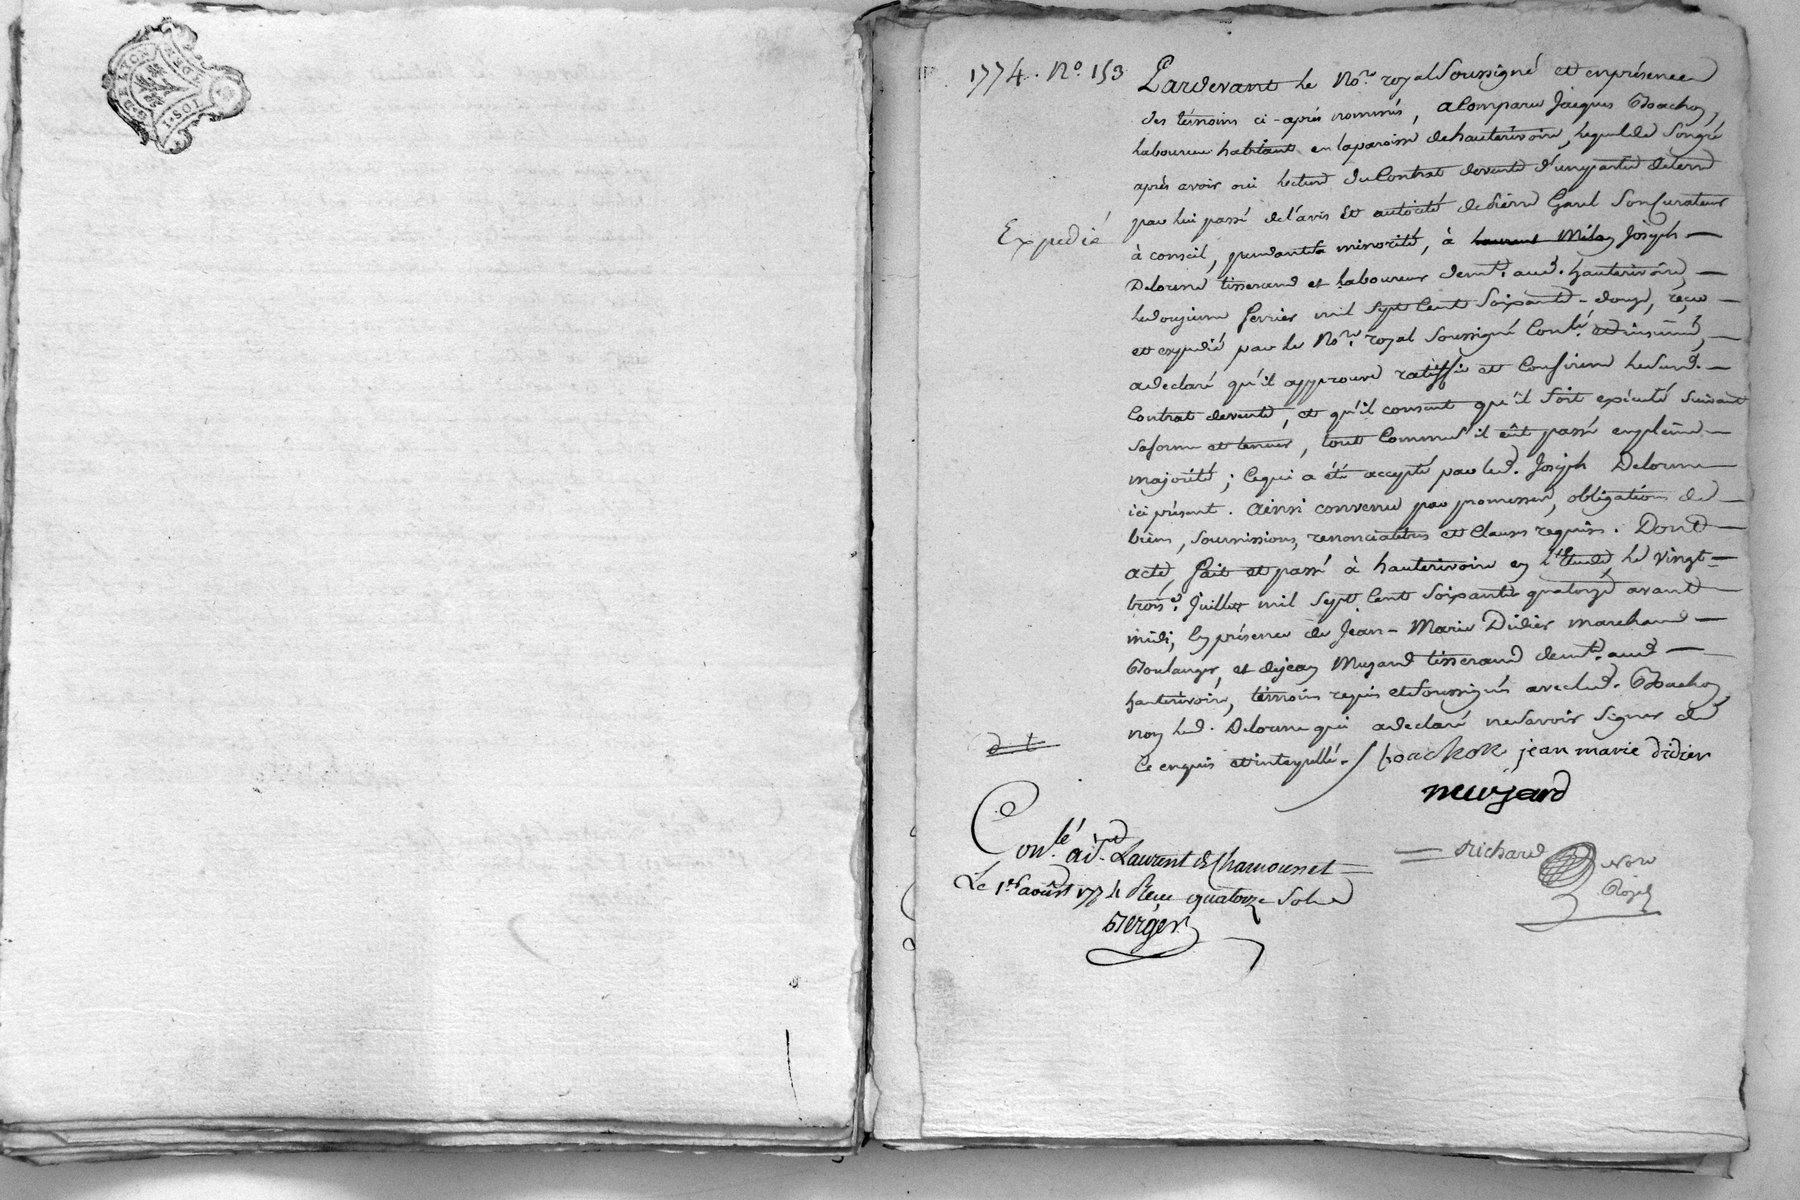 G. DE LYON
1 SOL
1774. No. 153
Pardevant le No.re royal soussigné et en présence
des témoins ci-après nommés, a comparu Jacques Bachon,
laboureur habitant en la paroisse de hauterivoire, lequel de son gré
après avoir oui lecture du Contrat de vente d'une partie de terre
par lui passé de l'avis et autorité de Pierre Garel son Curateur
Expedié
à conseil, pendant sa minorité, à Joseph
Delorme tisserand et laboureur dem.t aud. hauterivoire,
le douzieme fevrier mil sept Cent soixante-douze, reçu
et expedié par le No.re royal soussigné Con.lé et insinué,
a declaré qu'il approuve ratiffie et Confirme le susd.
Contrat de vente, et qu'il consent qu'il soit exécuté suivant
sa forme et teneur, tout Comme s'il eût passé en pleine
majorité; Ce qui a été accepté par led. Joseph Delorme
ici présent. Ainsi convenu par promesses, obligations de
biens, soumissions, renonciations et Clauses requises. Dont
acte, fait et passé à hauterivoire en l'Etude, le vingt-
trois.e Juillet mil sept Cent soixante quatorze avant
midi, En présence de Jean-Marie Didier marchand
Boulanger, et de jean Mujard tisserand dem.t aud.
hauterivoire, témoins requis et soussignés avec led. Bachon,
non led. Delorme qui a declaré ne savoir signer de
Ce enquis et interpellé.
bachon jean marie didier
mujard
Con.lé à S.t Laurent de Chamousset
Le 1.er août 1774 Reçu quatorze sols
Berger
Richard
No.re
Royal